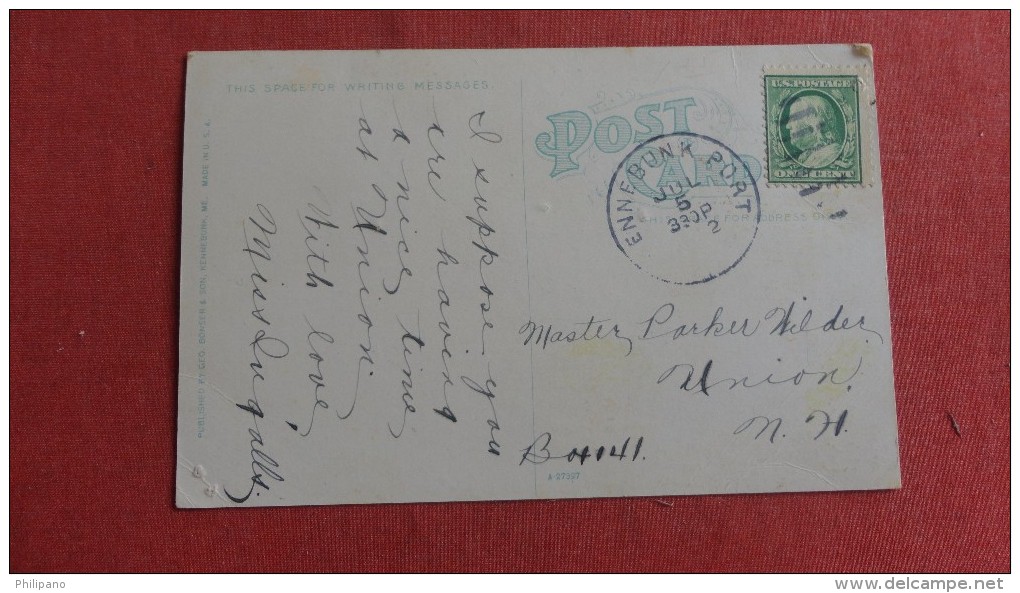 THIS SPACE FOR WRITING MESSAGES.
I suppose you
are having
a nice time
at Union.
With love,
Miss Ingalls.
PUBLISHED BY GEO. BONSER & SON, KENNEBUNK, ME. MADE IN U.S.A.
POST
CARD
U.S. POSTAGE
ENNEBUNK PORT
JUL
5
330P
2
FOR ADDRESS
Master Parker Wilder,
Union,
N. H.
Box 141.
A-27397
Philipano
www.delcampe.net